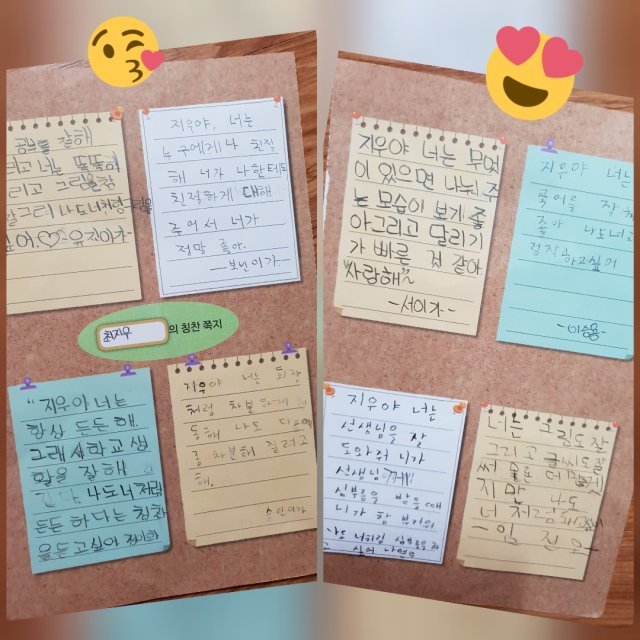 공부를 잘해
너는 똑똑해
그리고 그림을 잘
그려 나도 너처럼
싶어♡-유진이가-
지우야, 너는
누구에게나 친절
해 너가 나한테도
친절하게 대해
주어서 너가
정말 좋아.
최지우 의 칭찬 쪽지
"지우야 너는
항상 든든해.
그래서 학교 생
활을 잘해
나도 너처럼
든든 하다는 칭찬
을 듣고 싶어
지우야 너는
처럼 차분하게 행
동해 나도
좀 차분해 질려고
해.
지우야 너는 무엇
이 있으면 나눠 주
는 모습이 보기 좋
아 그리고 달리기
가 빠른 거 같아
사랑해~
-서이가-
지우야 너는
좋아 나도 너
하고 싶어
지우야 너는
선생님을 잘
도와줘 니가
선생님께
심부름을 받을 때
니가 참 부러워
나도 너처럼 심부름을 하
고 싶어
너는 그림도 잘
그리고 글씨도 잘
써
지만 나도
너처럼